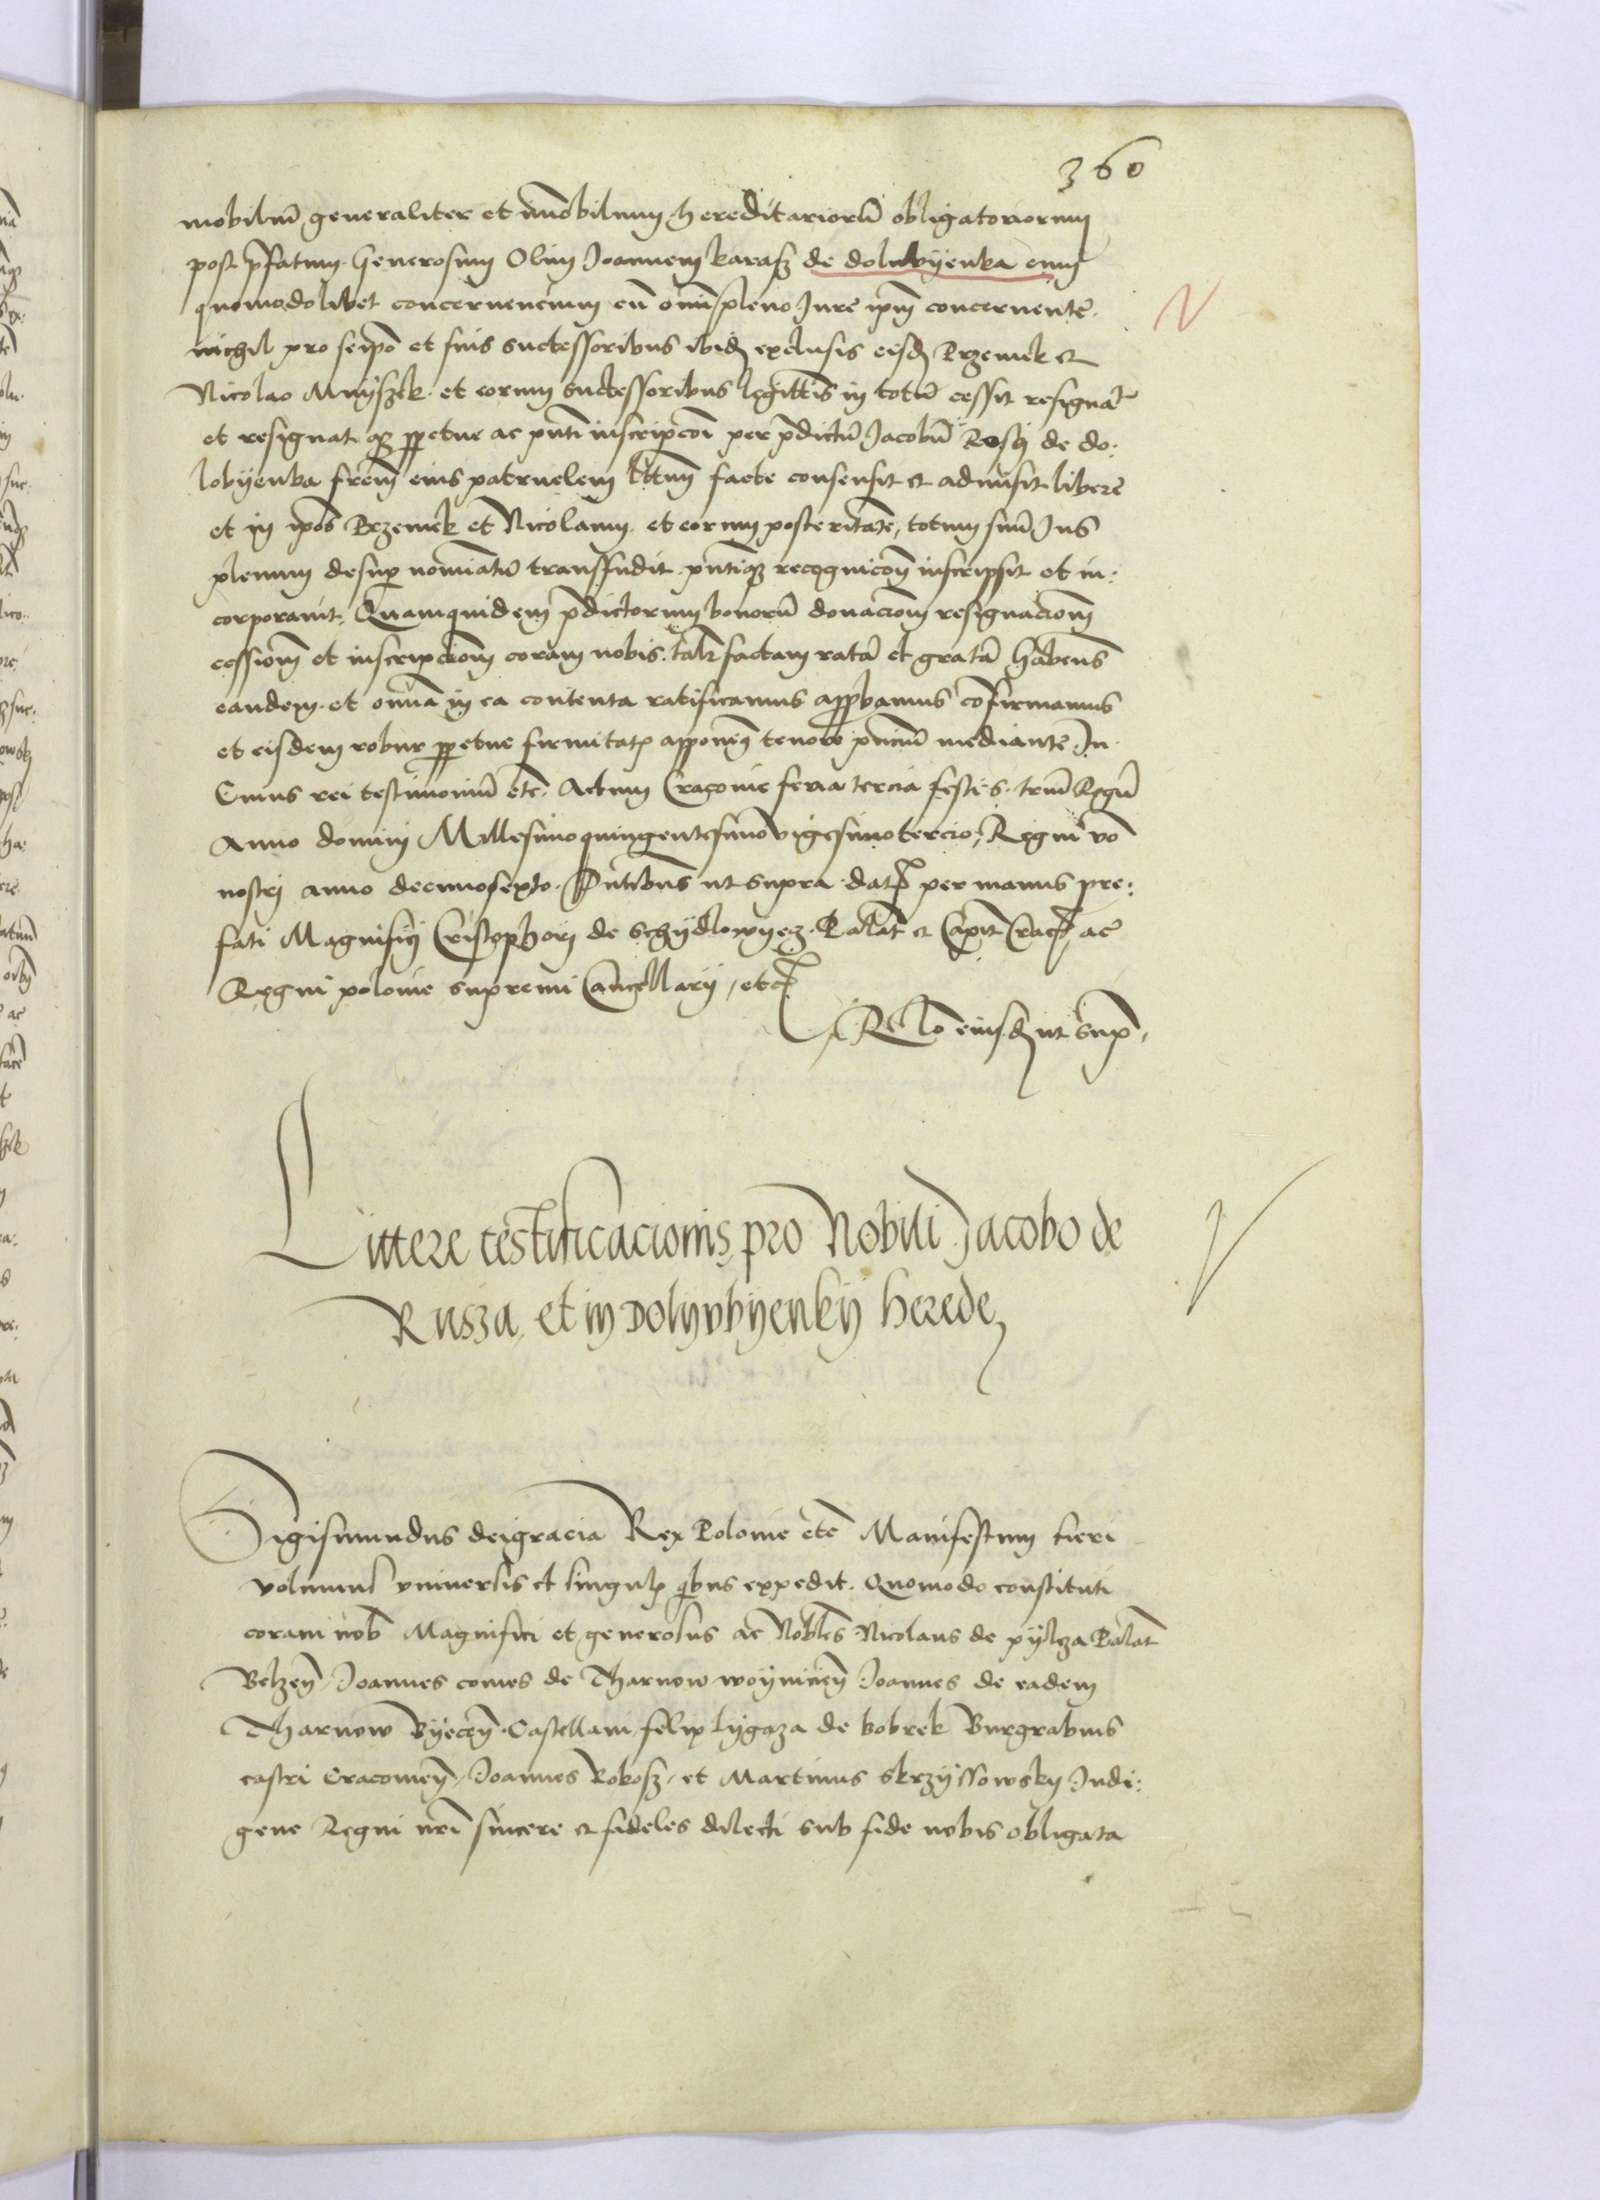 360
mobiliu͂ generaliter et im̄obilium hereditarioru͂ obligatoriorum
post p̄fatum Generosum Olim Joannem karasz de dolubyenka eum
quomodolibet concernencium cu͂ omi͂ pleno Jure ip̄m concernente.
nichil pro seip̄o et suis successoribus ibid͂ exclusis eisd͂ Brzemek et
Nicolao Mnyszek et eorum successoribus legitti͂s in totu͂ cessit resignat
et resignat p̄petue ac pn̄ti inscripcōi per p̄dictu͂ Jacobu͂ de do:
lobyenka frēm eius patruelem facte consensit et admisit libere
et in ip̄os Brzemek et Nicolaum et eorum posteritate͂, totum suu͂ Jus
plenum desup͂ nomi͂atu͂ transfudit pn̄tiq3 recognicōn͂ inscripsit et in:
corporavit, Quamquidem p̄dictorum bonoru͂ donaciōm resignaciōm
cessiōm et inscripciōm coram nobis talr͂ factam rata͂ et grata͂ habens
eandem et om̄ia in ea contenta ratificamus app̄bamus cōfirmamus
et eisdem robur p̄petue firmitat͂ apponim9 tenore pn̄ciu͂ mediante In
Cuius rei testimoniu͂ etc͂. Actum Cracovie feria tercia festi s. triu͂ Regu͂
Anno domini Millesimoquingentesimovigesimotercio, Regni vo͂
nostri anno decimosexto. Pn̄tibus ut supra dat͂ per manus pre:
fati Magnifici Cristophori de Schydlowyecz Palat͂ et Capit͂ Crac͂ ac
Regni polonie supremi Cancellarij, etc͂
Relo͂ eiusd͂ ut sup͂,
Littere testificacionis pro Nobili Jacobo de
Rusza, et in Dolyvbyenky herede
Sigismundus deigracia Rex Polonie etc͂ Manifestum fieri
volumus universis et singul͂ qbus expedit. Quomodo constituti
coram nob͂ Magnifici et generosus ac Nobles Nicolaus de pylcza Palat͂
Belzen͂, Joannes comes de Tharnow woynicien͂ Joannes de eadem
Tharnow Byecen͂ Castellani, felix lygaza de bobrek Burgrabius
castri Cracovien͂, Joannes Rokosz, et Martinus Skrzyssowsky Indi:
gene Regni nr͂i sincere et fideles dilecti sub fide nobis obligata